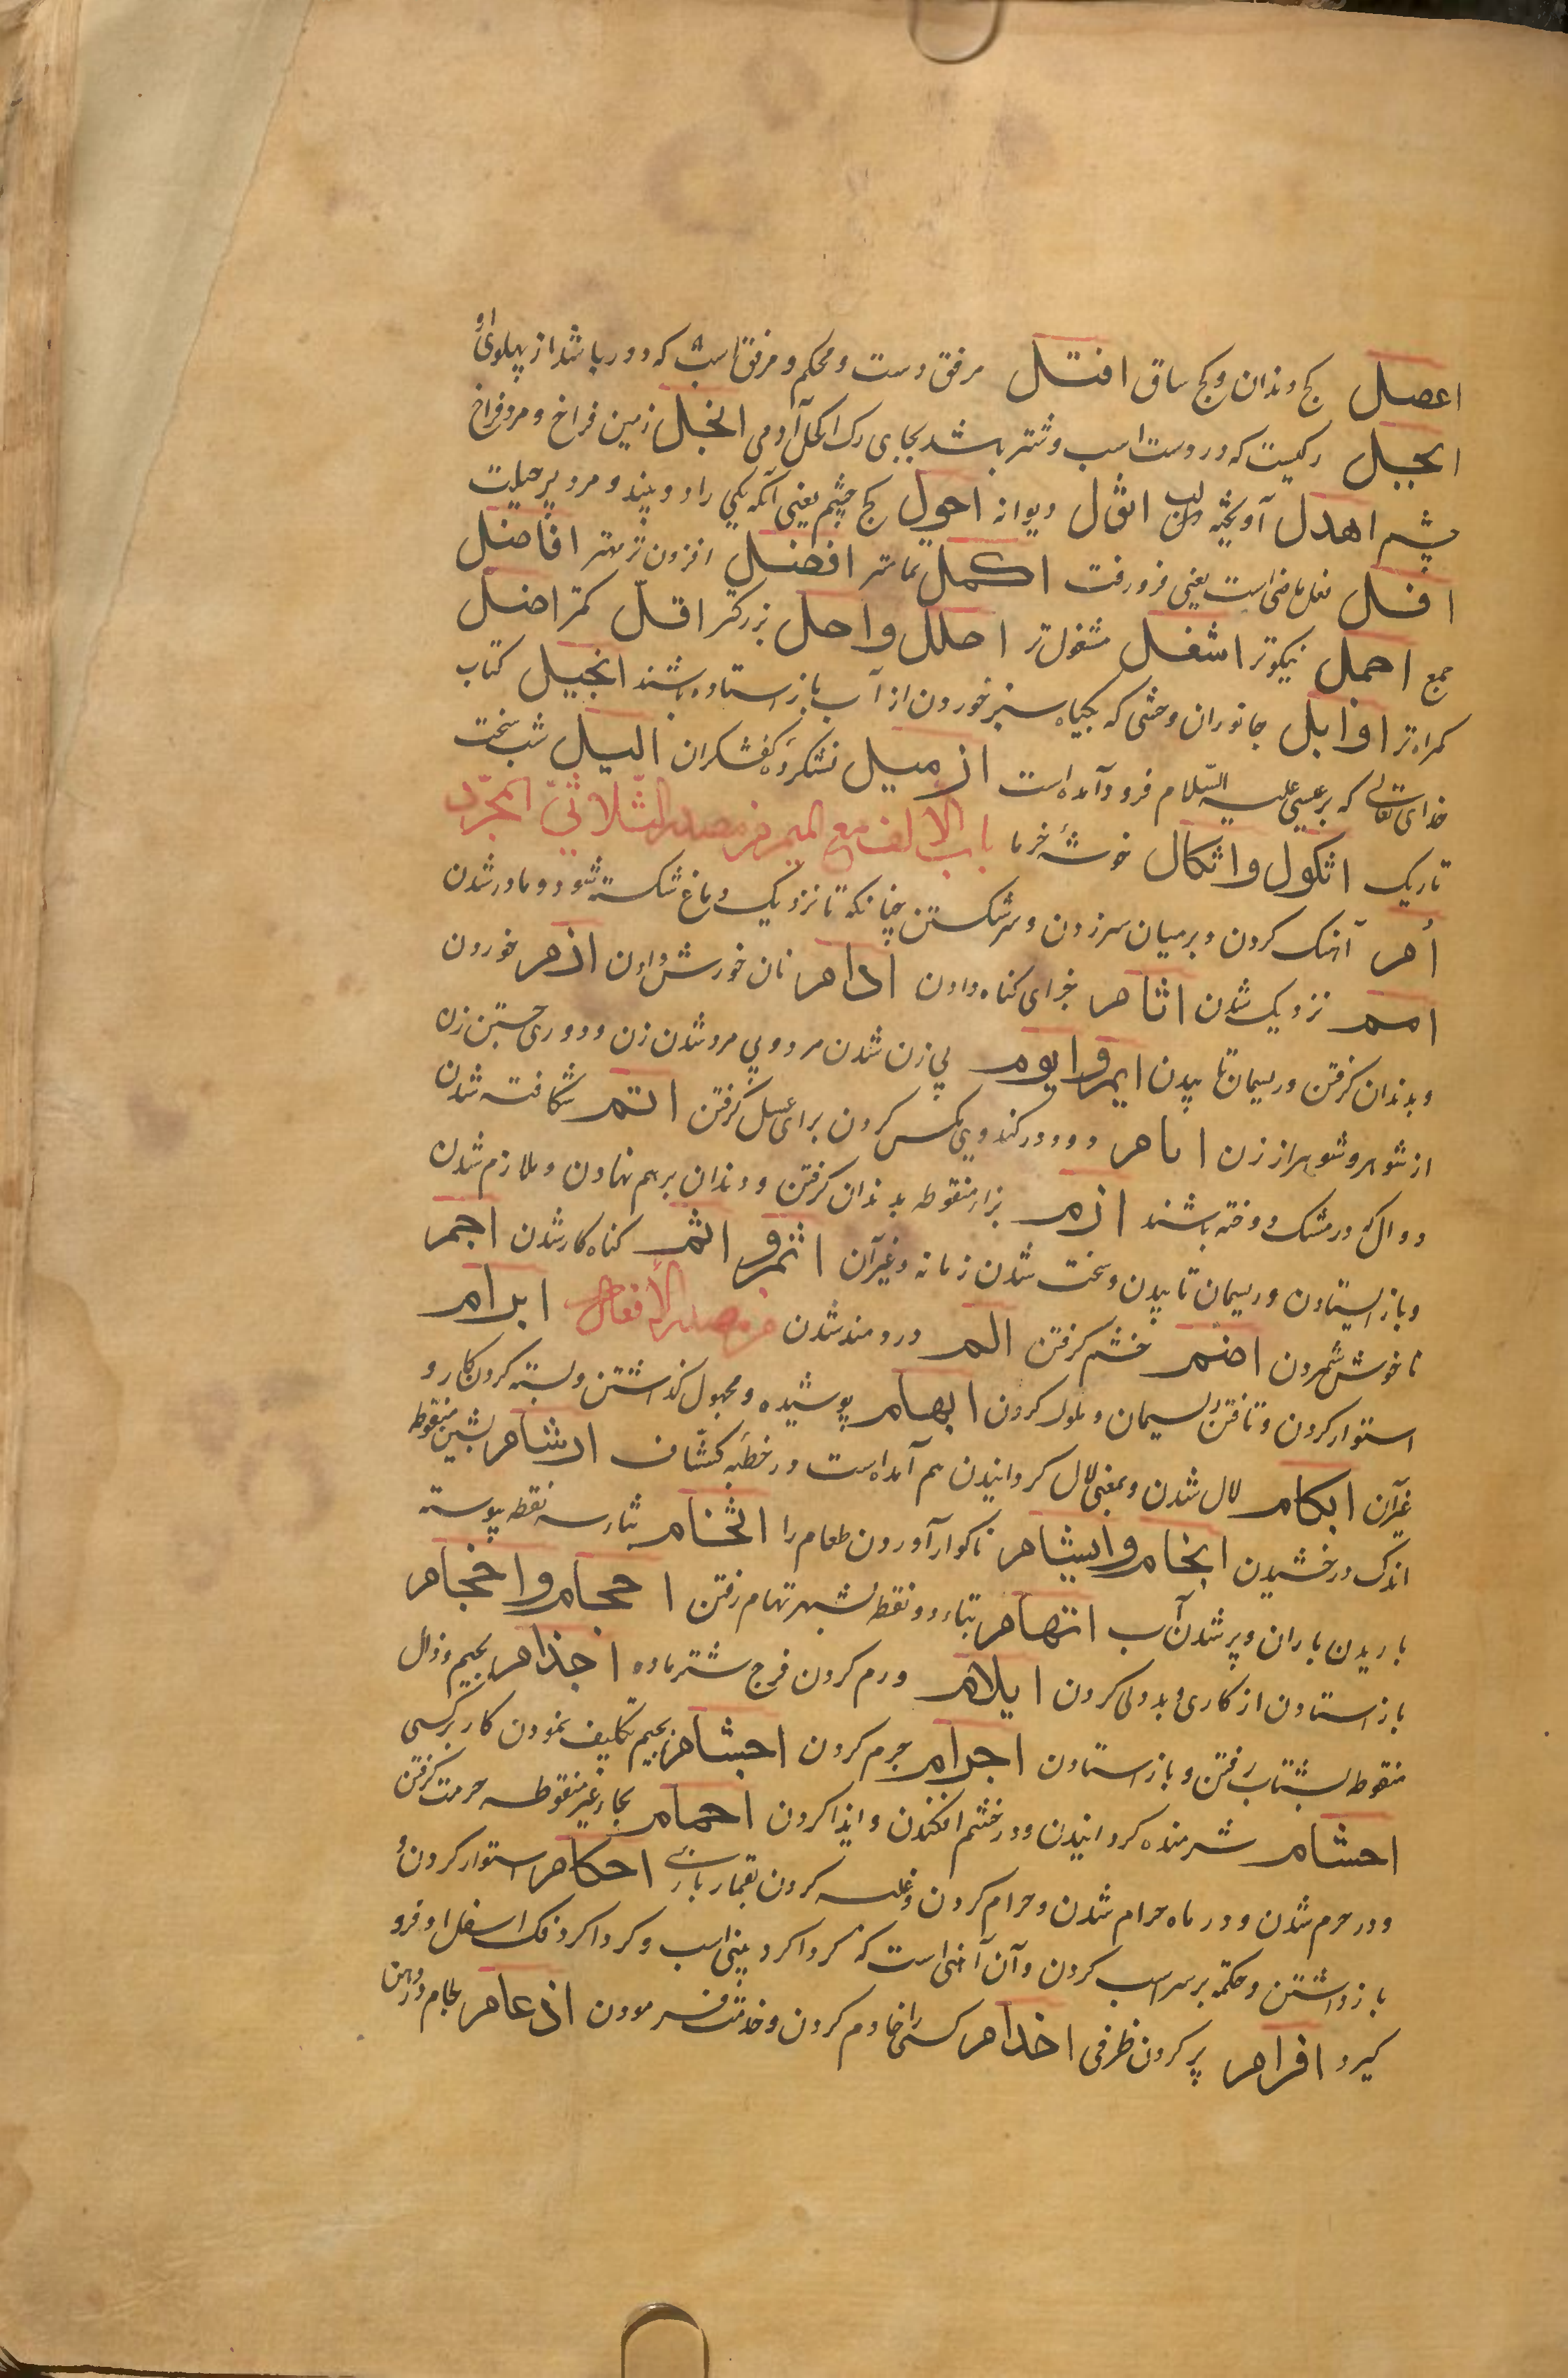 اعصل کج دندان و کج ساق افتل مرفق دست و محکم و مرفق است که دور باشد از پهلوی او
ابجل رکیست که در دست اسب و شتر باشد بجای رک اکحل آدمی انجل زمین فراخ و مرد فراخ
چشم اهدل آویخته لب اثول دیوانه احول کج چشم یعنی آنکه یکی را دو بیند و مرد پرحیلت
افل فعل ماضی است یعنی فرو رفت اکمل تمامتر افضل افزون تر بهتر افاضل
جمع اجمل نیکوتر اشغل مشغول تر اجلل و اجل بزرکتر اقل کمتر اضل
کمراه تر اوابل جانوران وحشی که بکیاه سبز خوردن از آب باز استاده باشند انجیل کتاب
خدای تعالی که بر عیسی علیه السلام فرود آمده است ازمیل نشکرده کفشکران الیل شب سخت
تاریک اثکول و اثکال خوشه خرما باب الالف مع المیم من مصدر الثلاثی المجرد
أم آهنک کردن و بر میان سر زدن و سر شکستن چنانکه تا نزدیک دماغ شکسته شود و مادر شدن
امم نزدیک شدن اثام جزای کناه دادن ادام نان خورش دادن اذم خوردن
و بدندان کرفتن و ریسمان تابیدن ایم و ایوم بی زن شدن مرد و بی مرد شدن زن و دوری جستن زن
از شوهر و شوهر از زن ایام دود در کندوی مکس کردن برای عسل کرفتن اتم شکافته شدن
دوال که در مشک دوخته باشند ازم بزاء منقوطه بدندان کرفتن و دندان بر هم نهادن و ملازم شدن
و باز ایستادن و ریسمان تابیدن و سخت شدن زمانه و غیر آن اثم و اثم کناه کار شدن اجم
ناخوش شمردن اضم خشم کرفتن الم دردمند شدن من مصدر الافعال ابرام
استوار کردن و تافتن ریسمان و ملول کردن ابهام پوشیده و مجهول کذاشتن و بسته کردن کار و
غیر آن ابکام لال شدن و بمعنی لال کردانیدن هم آمده است در خطبه کشاف ارشام بشین منقوطه
اندک درخشیدن ابخام و ابشام ناکوار آوردن طعام را اثخام بثاء سه نقطه پیوسته
باریدن باران و پر شدن آب اتهام بتاء دو نقطه بشهر تهام رفتن احجام و اخجام
باز استادن از کاری و بددلی کردن ایلام ورم کردن فرج شتر ماده اجذام بجیم و ذال
منقوطه بشتاب رفتن و باز استادن اجرام جرم کردن اجشام بجیم تکلیف نمودن کار بر کسی
احشام شرمنده کردانیدن و در خشم افکندن و ایذا کردن احرام بحاء غیر منقوطه حرمت کرفتن
و در حرم شدن و در ماه حرام شدن و حرام کردن و غلبه کردن بقمار بازی احکام استوار کردن و
باز داشتن و حکمه بر سر اسب کردن و آن آهنی است که کرداکرد بینی اسب و کرداکرد فک اسفل او فرو
کیرد افرام پر کردن ظرفی اخدام کسی را خادم کردن و خدمت فرمودن ازعام لجام در دهن